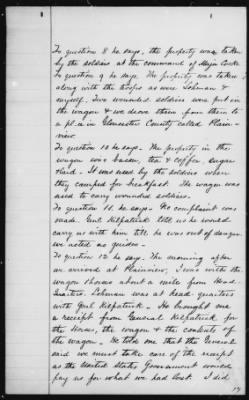 To question 8 he says, the property was taken
by the soldiers at the command of Major Cooke
To question 9 he says. The property was taken
along with the troops as were Lohman &
myself. Two wounded soldiers were put in
the wagon & we drove them from there to
a place in Gloucester County called Plain-
view.
To question 10 he says. The property in the
wagon was bacon, tea & coffee, sugar
lard. It was used by the soldiers when
they camped for breakfast. The wagon was
used to carry wounded soldiers.
To question 11 he says. No complaint was
made. Genl Kilpatrick told us he would
carry us with him till he was out of danger
we acted as guides.
To question 12 he says. The morning after
we arrived at Plainview, I was with the
wagon & horses about a mile from Head
Quarters. Lohman was at head quarters
with Genl Kilpatrick. He brought me
a receipt from General Kilpatrick for
the horses, the wagon & the contents of
the wagon. He told me that the General
said we must take care of the receipt
as the United States Government would
pay us for what we had lost. I did